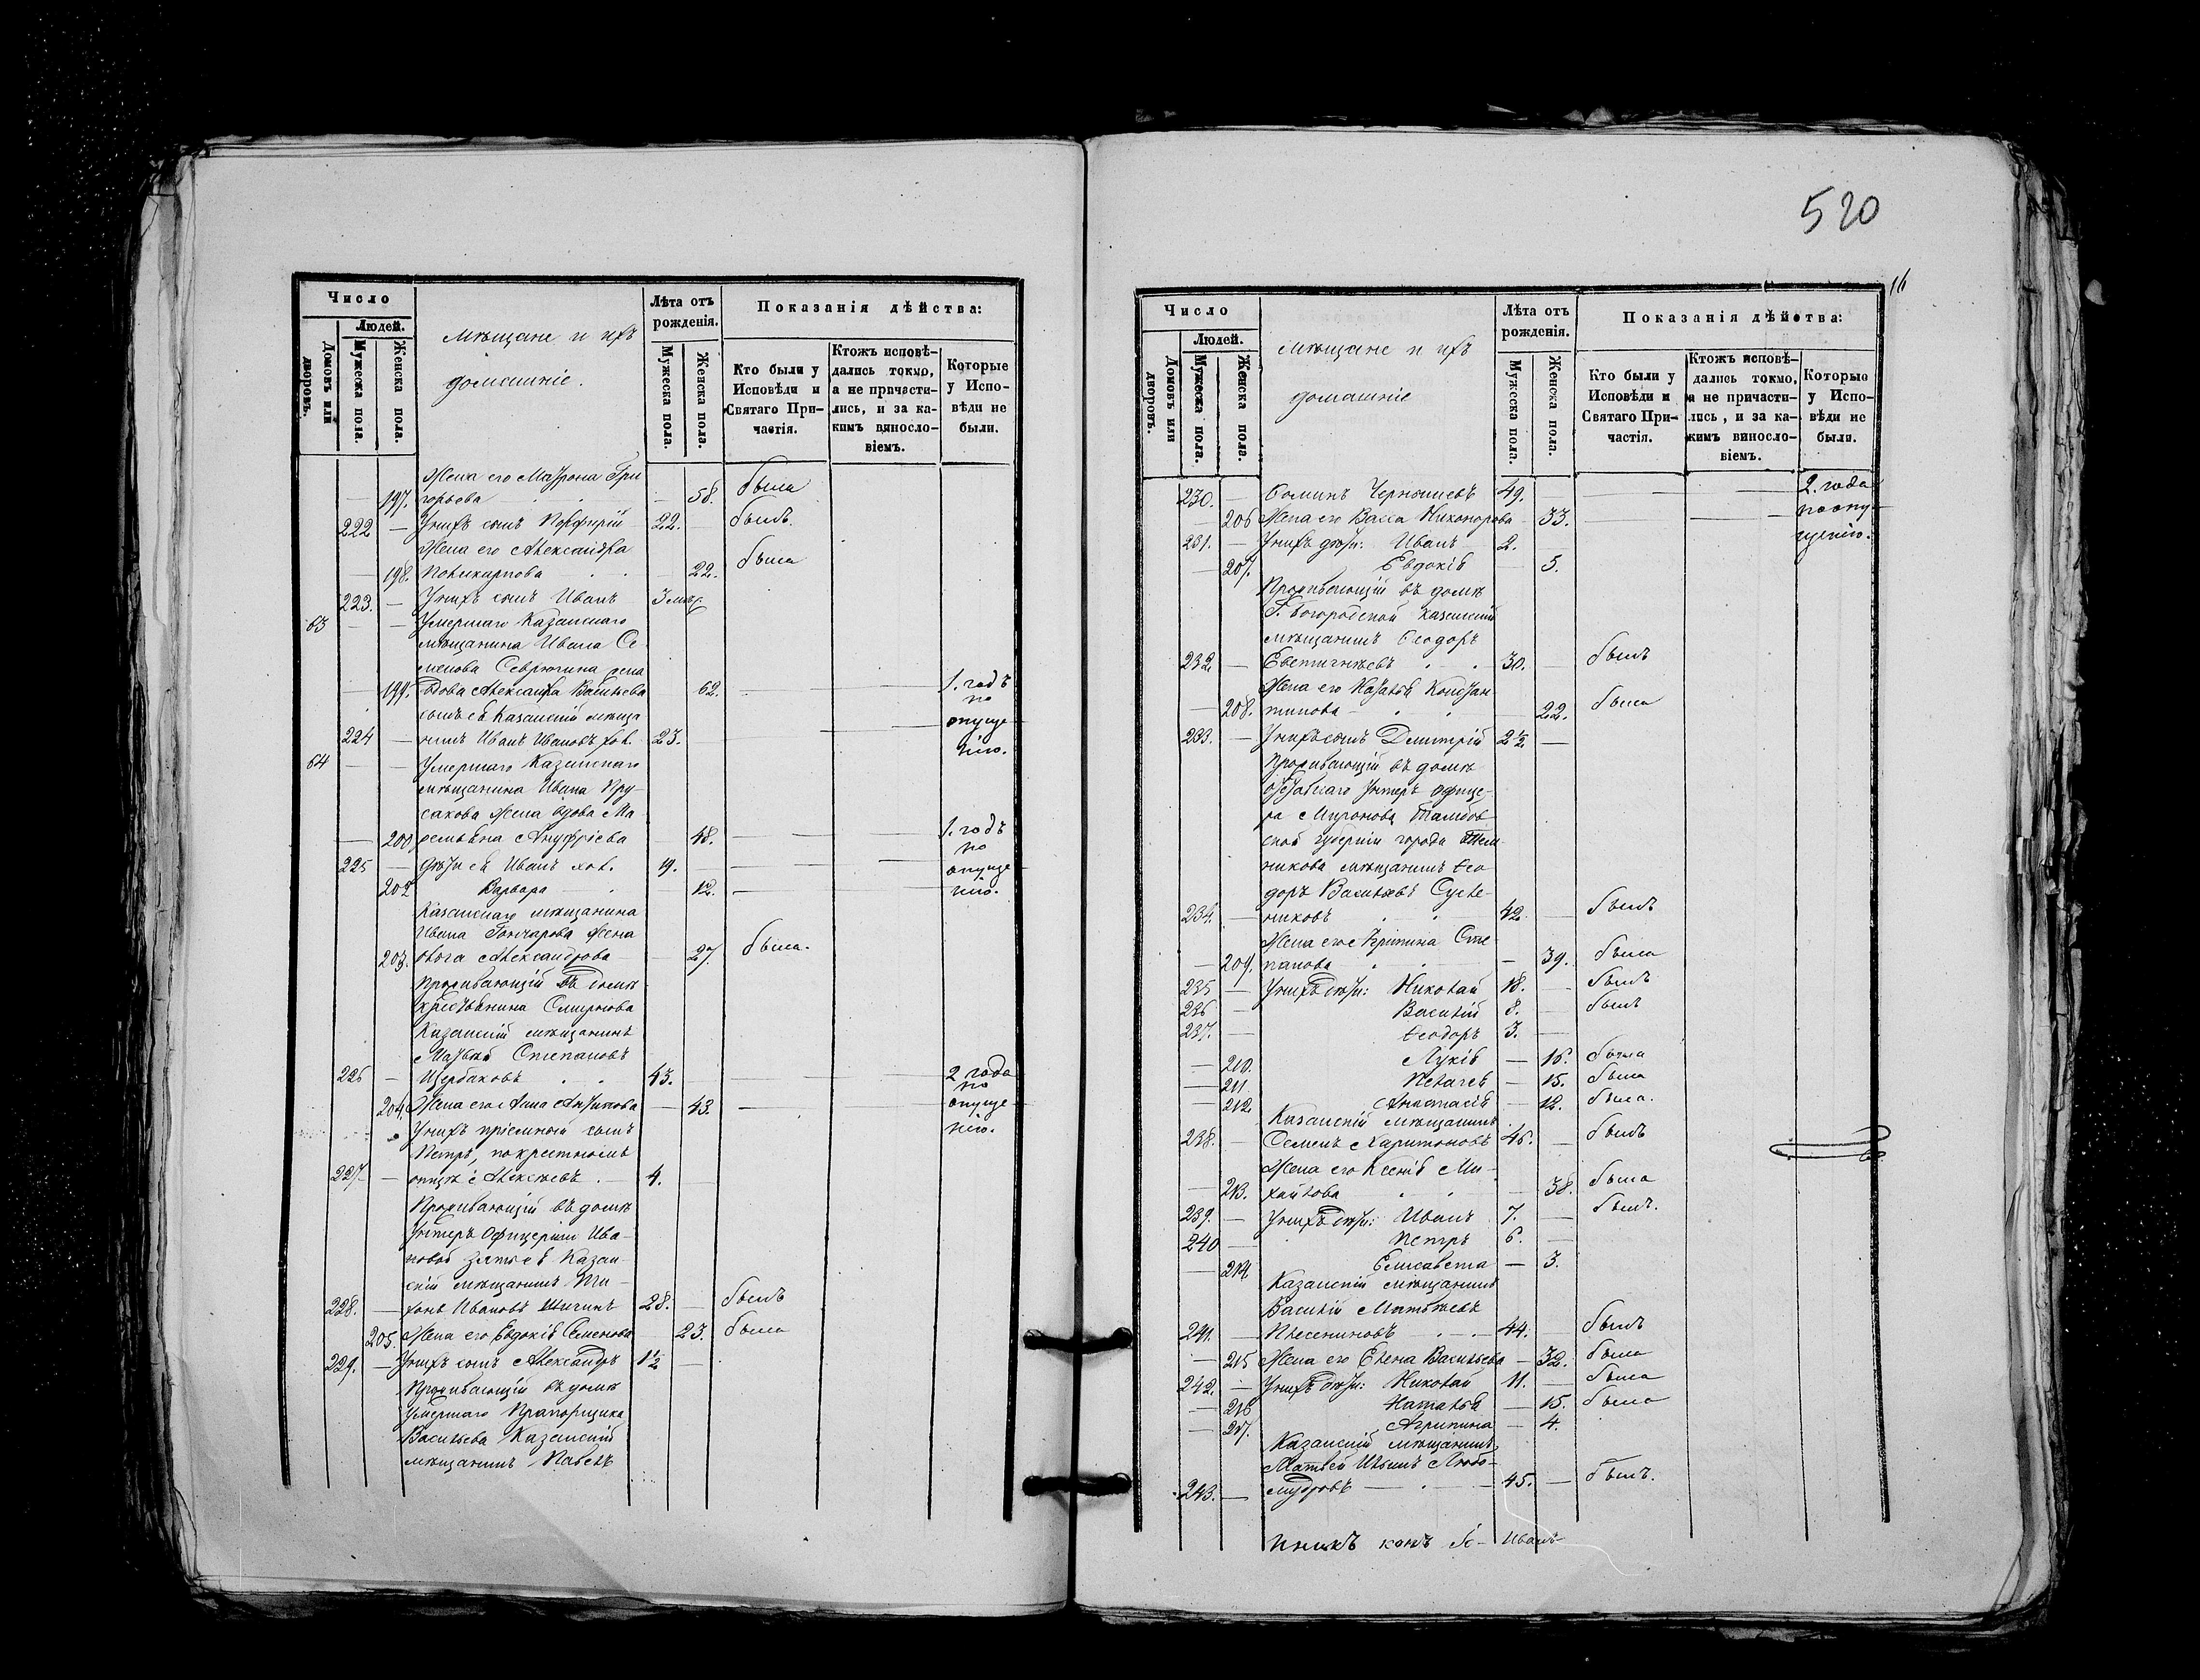 520
16
Число
Людей.
Домовъ или дворовъ.
Мужеска пола.
Женска пола.
мѣщане и ихъ
домашніе.
Лѣта отъ
рожденія.
Мужеска пола.
Женска пола.
Показанія дѣйства:
Кто были у
Исповѣди и
Святаго При-
частія.
Ктожъ исповѣ-
дались токмо,
а не причасти-
лись, и за ка-
кимъ винусло-
віемъ.
Которые
у Испо-
вѣди не
были.
Жена его Матрона Гри
197. горьева 58. была
222 — У нихъ сынъ Порфирій 22. былъ.
Жена его Александра
198. Поликарпова 22. была
223. — У нихъ сынъ Иванъ 3 мѣс
63 — — Умершаго Казанскаго
мѣщанина Ивана Се
менова Севрюгина жена
199. вдова Александра Васильева 62. — — 1. годъ
по
сынъ ея Казанскій мѣща опуще
224 — нинъ Иванъ Ивановъ хол. 23. нію.
64 — — Умершаго Казанскаго
мѣщанина Ивана Пру-
сакова жена вдова Ма
200 ремьяна Ануфріева 48. — 1. годъ
по
225 — дѣти ея Иванъ хол. 19. — опуще
202 Варвара 12. — нію.
Казанскаго мѣщанина
Ивана Гончарова жена
203. Ольга Александрова 27. была.
Проживающій въ домѣ
крестьянина Смирнова
Казанскій мѣщанинъ
Матвѣй Степановъ
226 — Щербаковъ 43. 2 года
по
204. Жена его Анна Антипова — 43. — опуще
У нихъ пріемный сынъ нію.
Петръ, по крестному
227 — отцѣ Алексѣевъ 4.
Проживающій въ домѣ
Унтеръ Офицерши Ива-
новой зять ея Казан-
скій мѣщанинъ Ти-
228. — хонъ Ивановъ Шигинъ 28. — былъ
205. Жена его Евдокія Семенова 23. была
229. — У нихъ сынъ Александръ 1½ —
Проживающій въ домѣ
умершаго Прапорщика
Васильева Казанскій
мѣщанинъ Павелъ
Число
Людей.
Домовъ или дворовъ.
Мужеска пола.
Женска пола.
мѣщане и ихъ
домашніе
Лѣта отъ
рожденія.
Мужеска пола.
Женска пола.
Показанія дѣйства:
Кто были у
Исповѣди и
Святаго При-
частія.
Ктожъ исповѣ-
дались токмо,
а не причасти-
лись, и за ка-
кимъ винусло-
віемъ.
Которые
у Испо-
вѣди не
были.
230. — Ѳоминъ Чернышевъ 49. — — 2. года
— 206 Жена его Васса Никонорова 33. — по опу-
231. — У нихъ дѣти: Иванъ 2. щенію.
— 207. Евдокія — 5.
Проживающій въ домѣ
Г. Богородской Казанскій
мѣщанинъ Ѳеодоръ
232. — Евстигнѣевъ 30. — былъ
Жена его Наталья Констан
— 208. тинова 22. была
233. — У нихъ сынъ Димитрій 2½ —
Проживающій въ домѣ
отставнаго Унтеръ Офице-
ра Миронова Тамбов
ской губерніи города Тем
никова мѣщанинъ Ѳео
доръ Васильевъ Сусле-
234. — никовъ 42. — былъ
Жена его Агрипина Сте-
— 209. панова — 39. была
235 — У нихъ дѣти: Николай 18. — былъ
236 — Василій 8. — былъ
237. — Ѳеодоръ 3. —
— 210. Лукія — 16. была
— 211 Пелагея — 15. была
— 212. Анастасія — 12. была.
Казанскій мѣщанинъ
238. — Семенъ Харитоновъ 46. — былъ
Жена его Ксенія Ми-
— 213. хайлова — 38. была
239. — У нихъ дѣти: Иванъ 7. — былъ.
240 — Петръ 6. —
— 214. Елисавета — 3.
Казанскій мѣщанинъ
Василій Матвѣевъ
241. — Плесениновъ 44. — былъ
— 215 Жена его Елена Васильева — 32. была
242. — У нихъ дѣти: Николай 11. — была
— 216 Наталья — 15. была
— 217. Агрипина — 4.
Казанскій мѣщанинъ
Матвѣй Ильинъ Любо-
243. — мудровъ 45. — былъ.
Иванъ